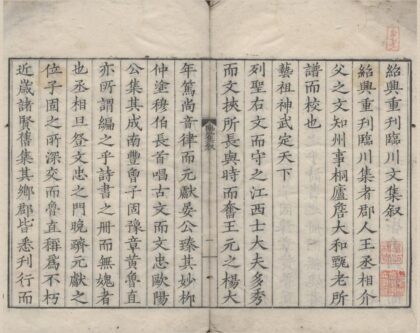 紹興重刊臨川文集叙
紹興重刊臨川集者郡人王丞相介
父之文知州事桐廬詹大和甄老所
譜而校也
藝祖神武定天下
列聖右文而守之江西士大夫多秀
而文挾所長與時而奮王元之楊大
年篤尚音律而元獻晏公臻其妙柳
仲塗穆伯長首唱古文而文忠歐陽
公集其成南豐曾子固豫章黄魯直
亦所謂編之乎詩書之冊而無媿者
也丞相旦登文忠之門晚躋元獻之
位子固之所深交而魯直稱爲不朽
近歲諸賢舊集其鄉郡皆悉刊行而